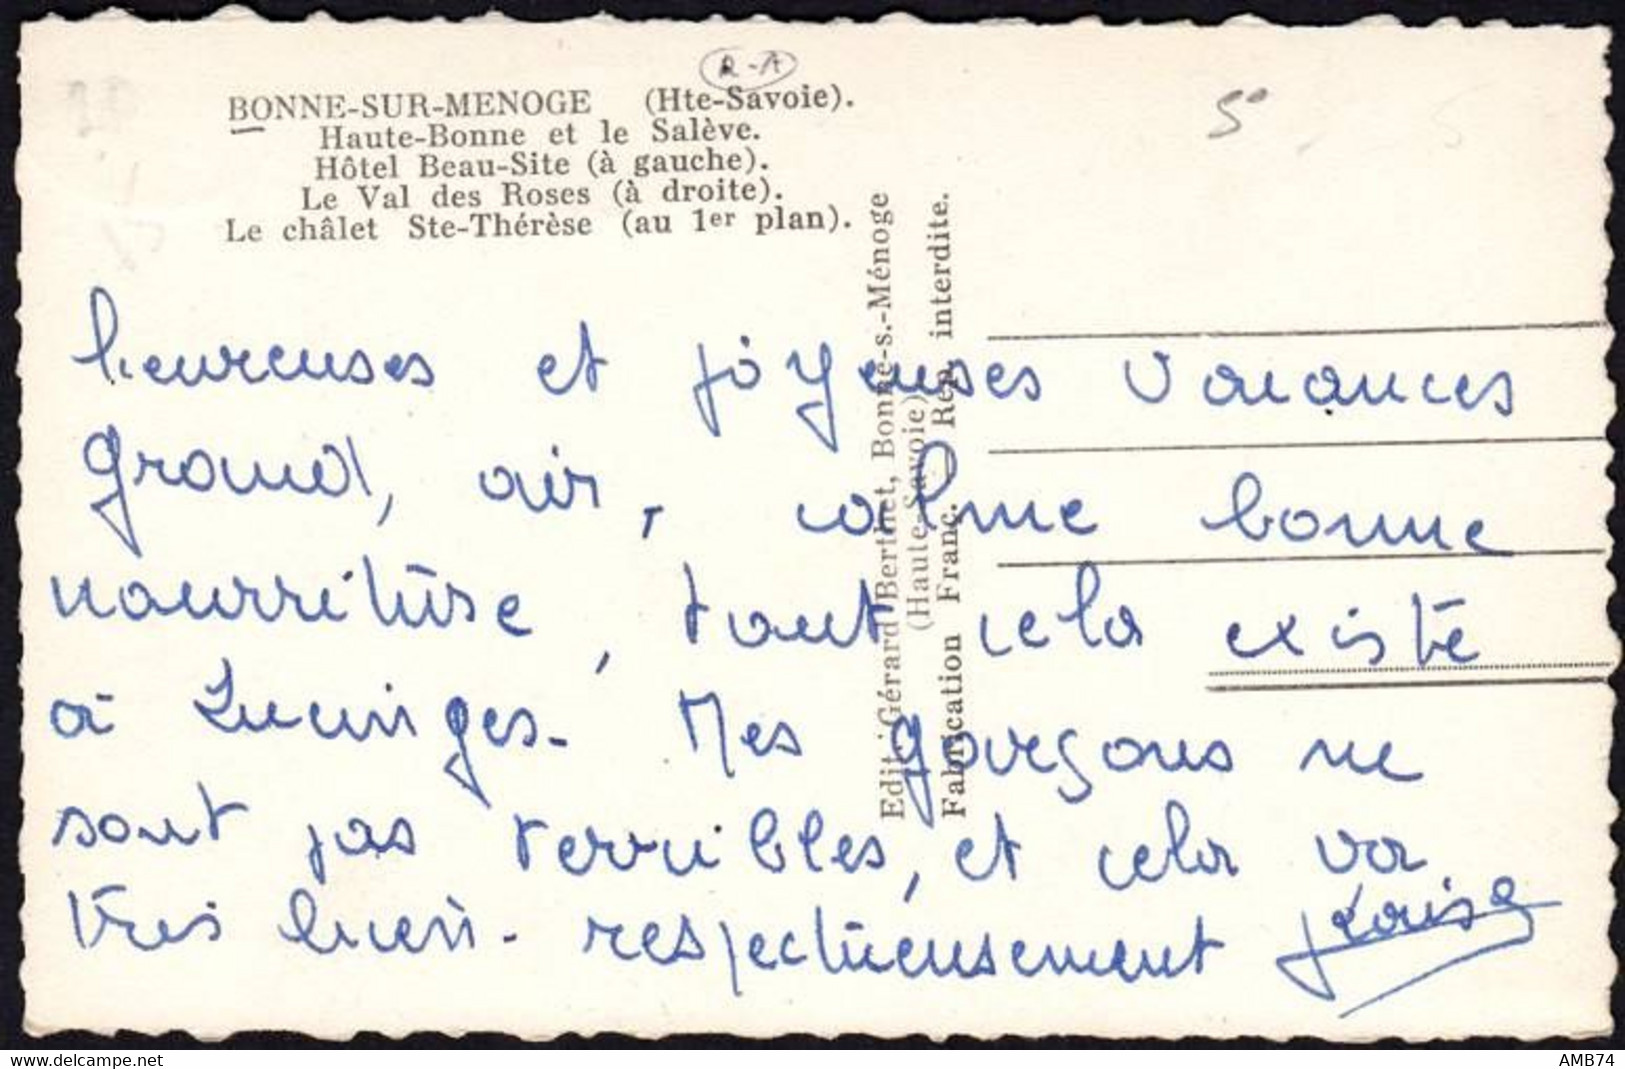 R-A
5°
BONNE-SUR-MENOGE (Hte-Savoie).
Haute-Bonne et le Salève.
Hôtel Beau-Site (à gauche).
Le Val des Roses (à droite).
Le châlet Ste-Thérèse (au 1er plan).
Edit. : Gérard Berthet, Bonne-s.-Ménoge
(Haute-Savoie)
Fabrication Franç. Rep. interdite.
heureuses et joyeuses vacances
grand, air, calme bonne
nourriture, tout cela existe
à Lucinges. Mes garçons ne
sont pas terribles, et cela va
très bien. respectueusement
AMB74